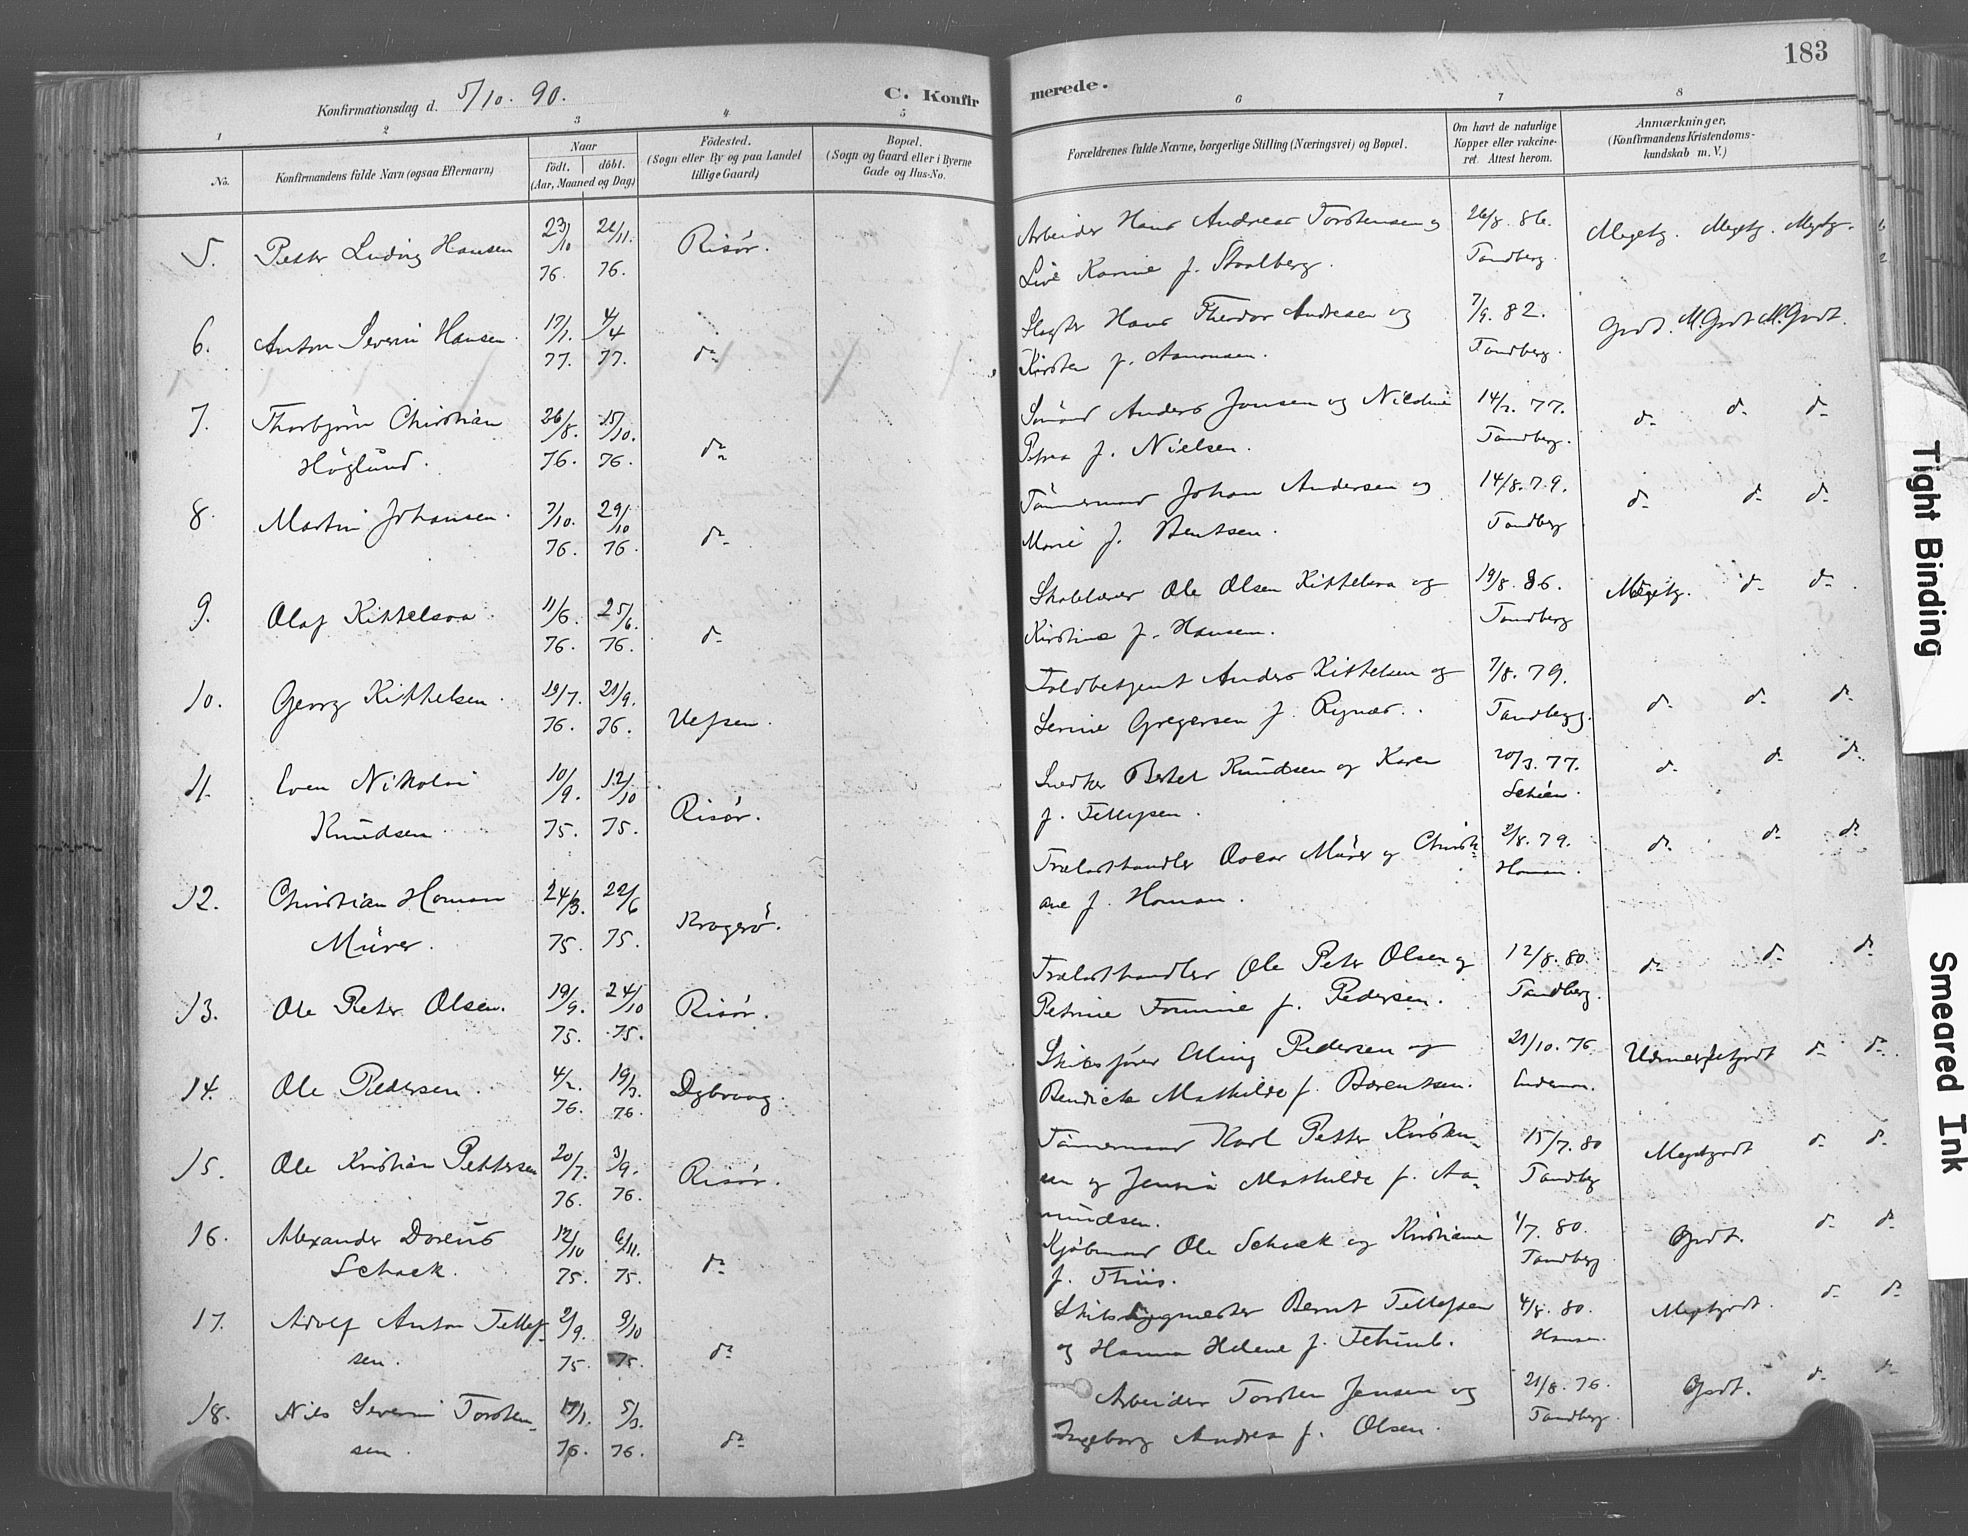 183
Konfirmationsdag d. 5/10. 90.
C. Konfir
merede.
1 2 3 4 5 6 7 8
No.
Konfirmandens fulde Navn (ogsaa Efternavn)
Naar
födt. döbt.
(Aar, Maaned og Dag)
Födested.
(Sogn eller By og paa Landet
tillige Gaard)
Bopæl.
(Sogn og Gaard eller i Byerne
Gade og Hus-No.
Forældrenes fulde Navne, borgerlige Stilling (Næringsvei) og Bopæl.
Om havt de naturlige
Kopper eller vakcine-
ret. Attest herom.
Anmærkninger,
(Konfirmandens Kristendoms-
kundskab m. V.)
5. Petter Ludvig Hansen 23/10 76. 26/11. 76. Risør.
Arbeider Hans Andreas Torstensen og
Live Karine f. Staalberg.
26/8. 86. Tandberg.
Megetg. Megetg. Megetg.
6. Anton Severin Hansen. 17/1. 77. 4/4 77. do
Slagter Hans Theodor Andresen og
Kirsten f. Aamonsen.
7/9. 82. Tandberg.
Godt. M.Godt M.Godt.
7. Thorbjørn Christian
Höglund. 26/8. 76. 15/10. 76. do
Sömand Anders Jonsen og Nicoline
Petrea f. Nielsen.
14/2. 77. Tandberg.
do do do
8. Martin Johansen. 7/10. 76. 29/10 76. do
Tömmermand Johan Andersen og
Marie f. Bentsen.
14/8. 79. Tandberg
do do do
9. Olaf Kittelsaa. 11/6. 76. 25/6. 76. do
Skolelærer Ole Olsen Kittelsaa og
Kirstine f. Hansen.
19/8. 86. Tandberg
Megetg. do do
10. Georg Kittelsen. 19/7. 76. 21/9. 76. Vefsen.
Toldbetjent Anders Kittelsen og
Serine Gregersen f. Rynæs.
7/8. 79. Tandberg.
do do do
11. Even Nikolai
Knudsen 10/9. 75. 12/10 75. Risør.
Snedker Bertel Knudsen og Karen
f. Tellefsen.
20/3. 77. Schien.
do do do
12. Christian Homan
Mürer. 24/3. 75. 22/6 75. Kragerö.
Trælasthandler Oscar Mürer og Christi-
ane f. Homan.
2/8. 79. Homan.
do do do
13. Ole Peter Olsen. 19/9. 75. 24/10 75. Risør.
Trælasthandler Ole Peter Olsen og
Petrine Tomine f. Pedersen.
12/8. 80. Tandberg.
do do do
14. Ole Pedersen. 4/2. 76. 19/3. 76. Dybvaag.
Skibsfører Elling Pedersen og
Bendicte Mathilde f. Berentsen.
21/10. 76.
Udmerketgodt do do
15. Ole Kristian Pettersen 20/7. 76. 3/9. 76. Risör.
Tömmermand Karl Petter Kristen-
sen og Jensine Mathilde f. Aa-
mundsen.
15/7. 80 Tandberg
Megetgodt do do
16. Alexander Doreus
Schack. 12/10 75. 6/11. 75. do
Kjøbmand Ole Schack og Kristiane
f. Thiis.
1/7. 80. Tandberg
Godt. do do
17. Adolf Anton Tellef-
sen. 2/9. 75. 9/10 75. do
Skibsbygmester Bernt Tellefsen
og Hanna Helene f.
4/8. 80. Hansen
Megetgodt. do do
18. Nils Severin Torsten-
sen. 17/1. 76. 5/3. 76. do
Arbeider Torsten Jensen og
Ingeborg Andrea f. Olsen.
21/8. 76. Tandberg.
Godt. do do
Tight Binding
Smeared Ink